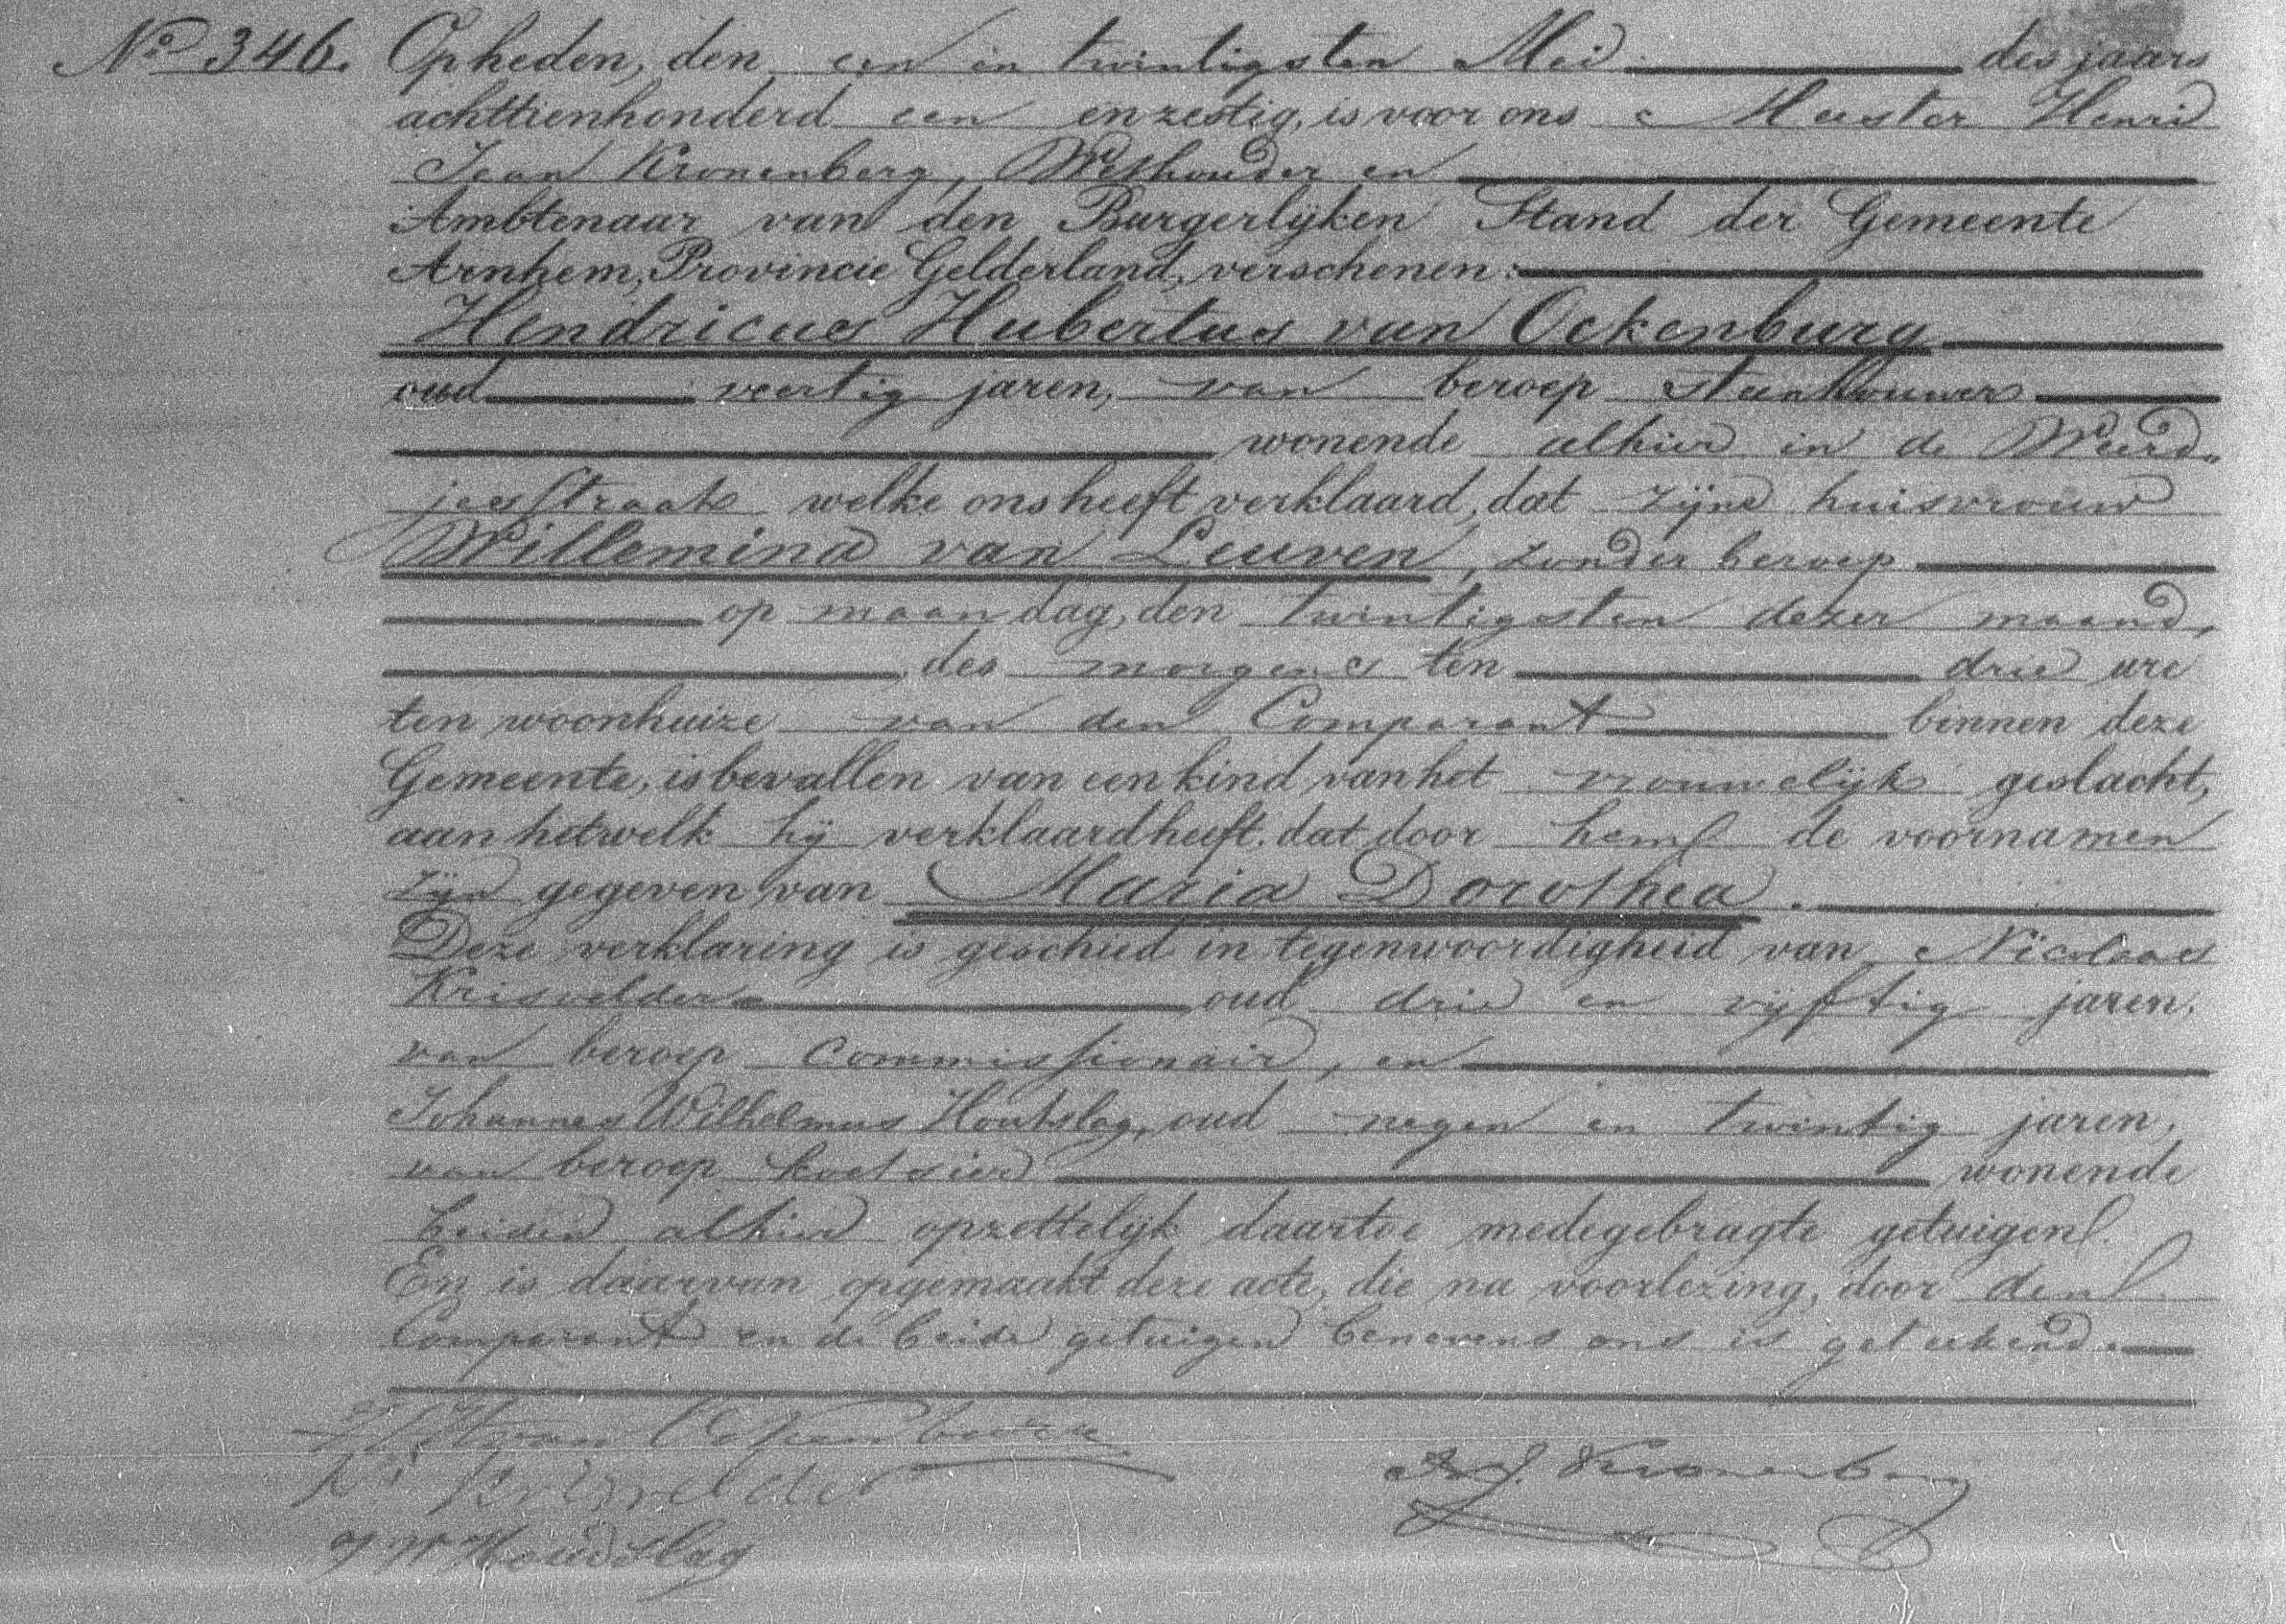 No 346. Op heden, den een en twintigsten Mei des jaars
achttienhonderd een en zestig, is voor ons Meester Henri
Jean Kronenberg, Wethouder en
Ambtenaar van den Burgerlijken Stand der Gemeente
Arnhem, Provincie Gelderland, verschenen:
Hendricus Hubertus van Ockenburg
oud veertig jaren, van beroep steenhouwer
wonende alhier in de Weerd„
jesstraat welke ons heeft verklaard, dat zijne huisvrouw
Willemina van Leuven, zonder beroep
op maandag, den twintigsten dezer maand,
des morgens ten drie ure
ten woonhuize van den Comparant binnen deze
Gemeente, is bevallen van een kind van het vrouwelijk geslacht,
aan hetwelk hij verklaard heeft, dat door hem de voornamen
zijn gegeven van Maria Dorothea.
Deze verklaring is geschied in tegenwoordigheid van Nicolaas
Krisvelder oud drie en vijftig jaren,
van beroep Commissionair, en
Johannes Wilhelmus Houtslag, oud negen en twintig jaren,
van beroep koetsier wonende
beiden alhier opzettelijk daartoe medegebragte getuigen.
En is daarvan opgemaakt deze acte, die na voorlezing, door den
Comparant en de beide getuigen benevens ons is geteekend.
H H van Ockenburg
Ns Krisvelder
H J. Kronenberg
J W Houdslag